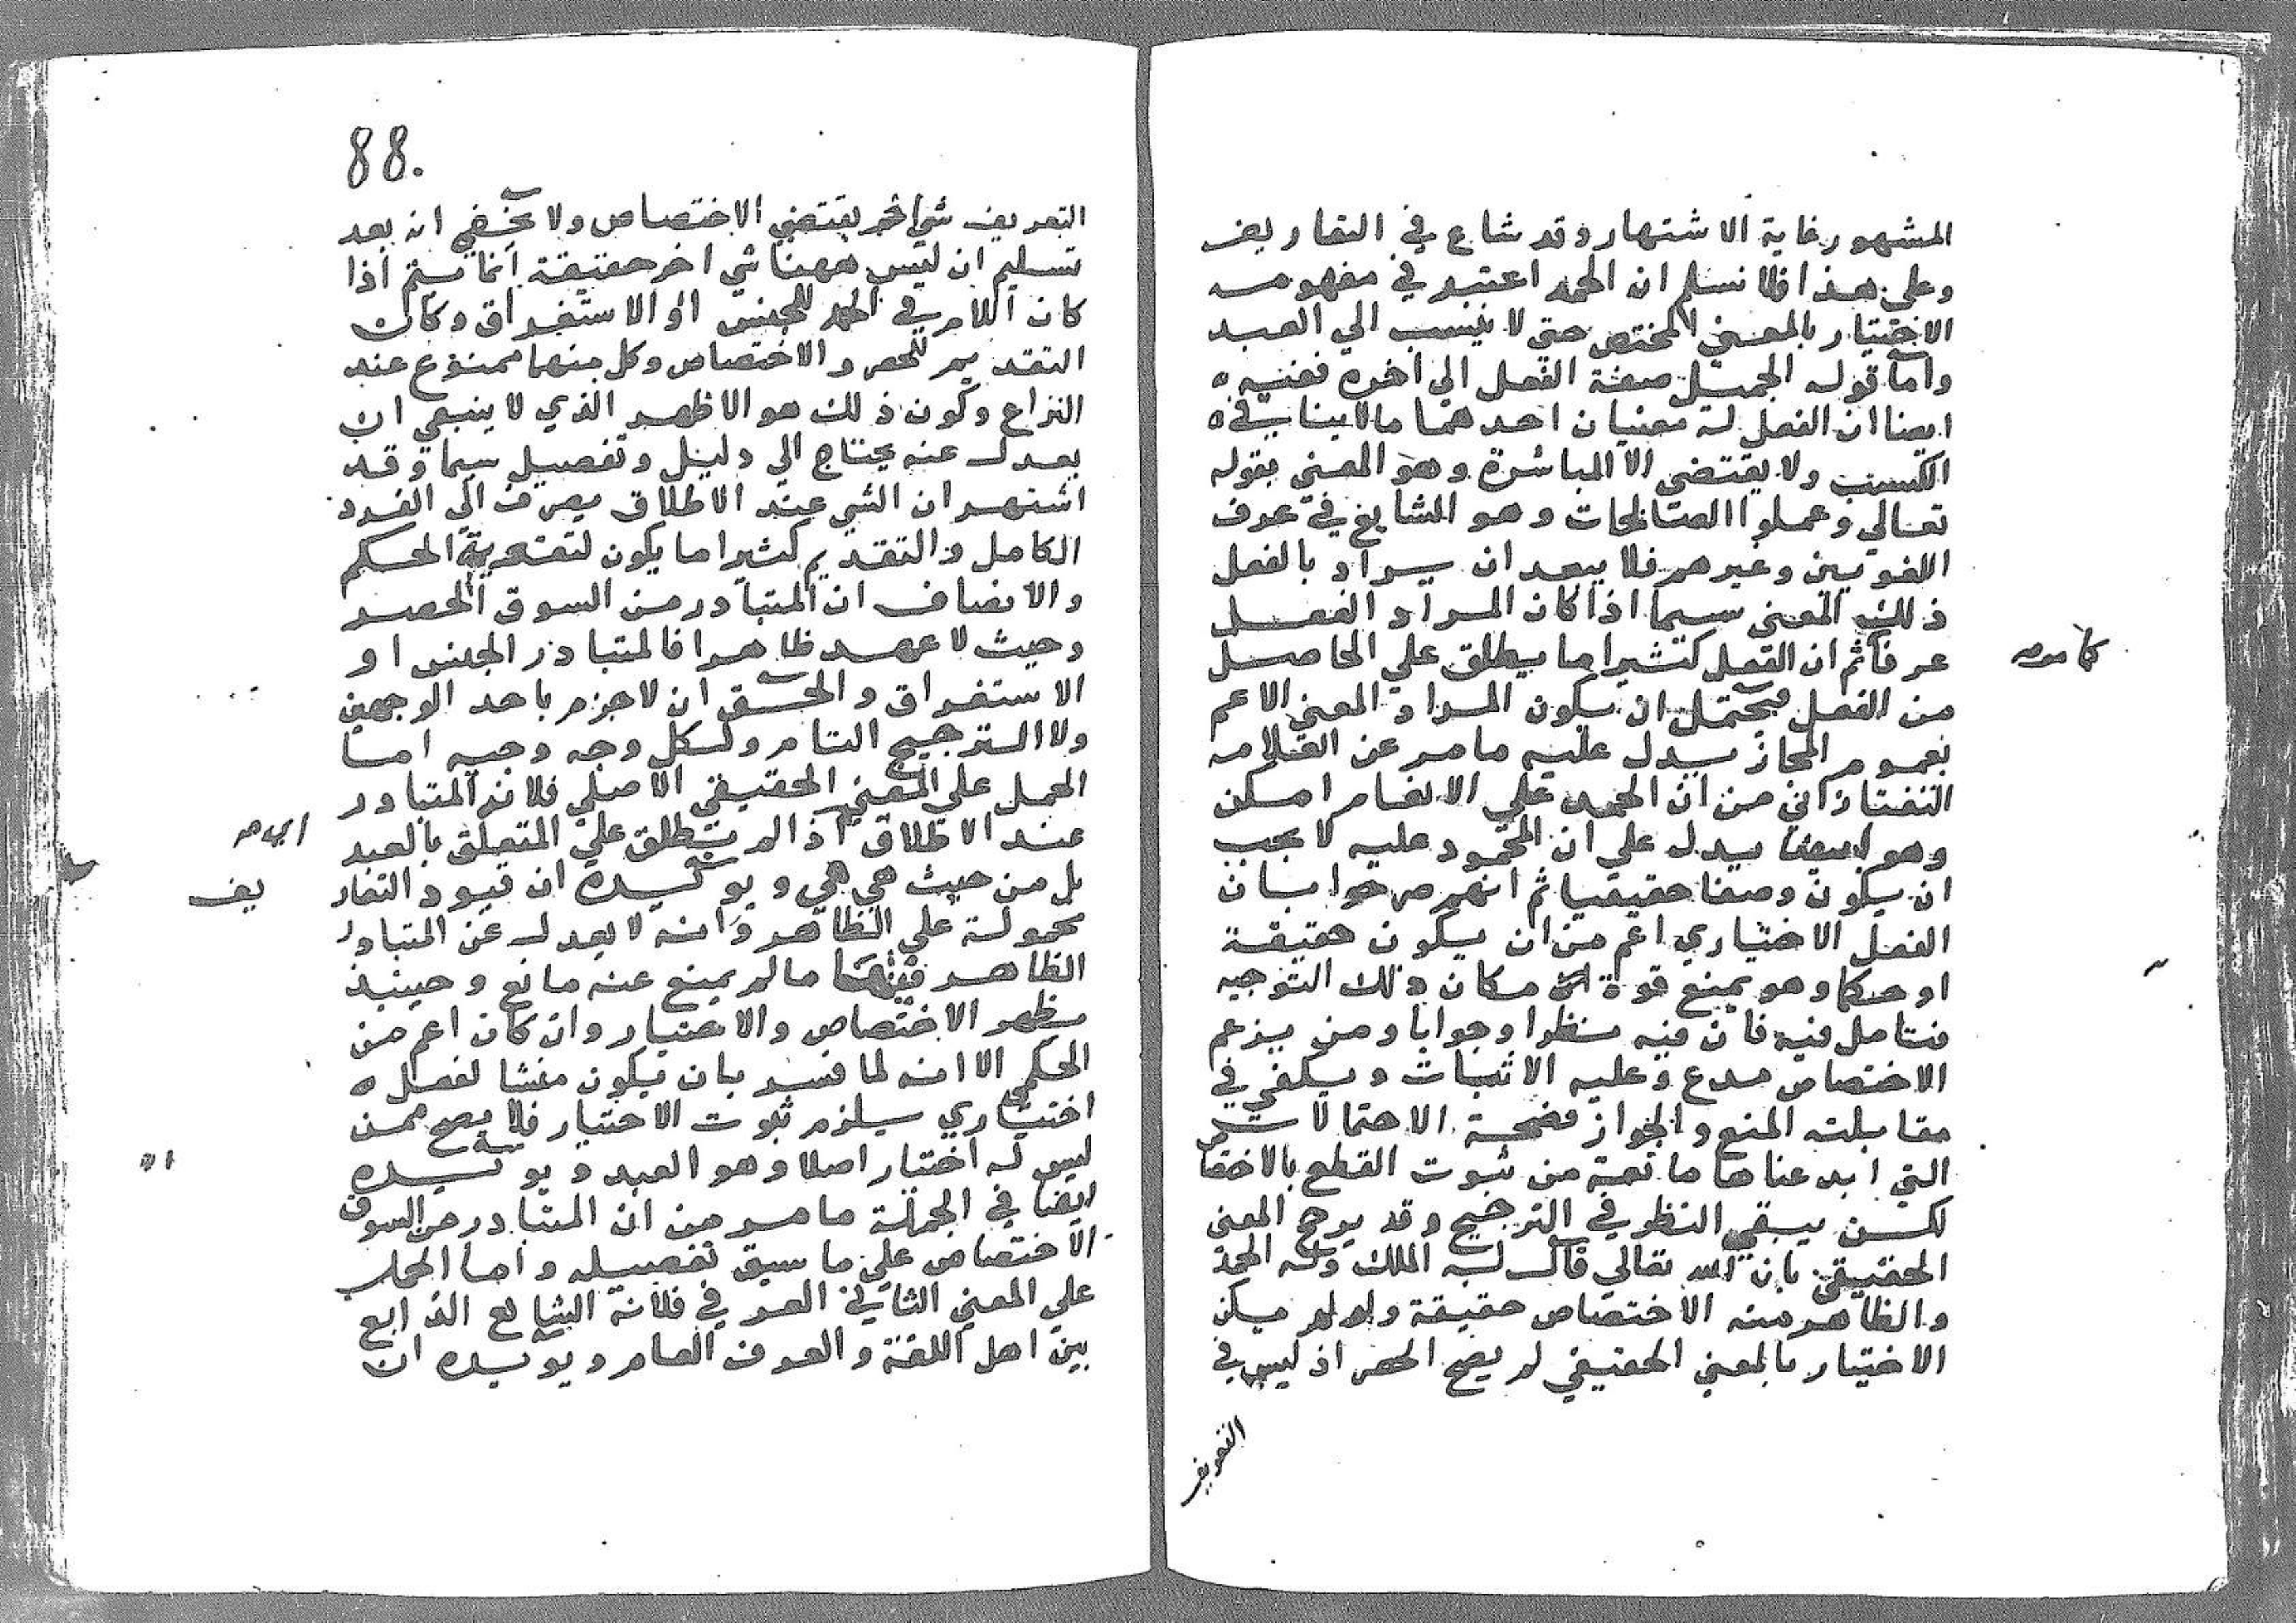 المشهور غاية الاشتهار وقد شاع في التعاريف
وعلي هذا فلا نسلم ان الحمد اعتبر في مفهومه
الاختيار بالمعني المختص حتي لا ينسب الي العبد
واما قوله الجميل صفة الفعل الي اخره ففيه
ايضا ان الفعل له معنيان احدهما ما لا ينافي
الكسب ولا يقتضي الا المباشرة وهو المعني بقوله
تعالي وعملوا الصالحات وهو الشايع في عرف
اللغويين وغيرهم فلا يبعد ان يراد بالفعل
ذلك المعني سيما اذا كان المراد الفعل
عرفا ثم ان الفعل كثيرا ما يطلق علي الحاصل
كما مر
من الفعل فيحتمل ان يكون المراد المعني الاعم
بعموم المجاز يدل عليه ما مر عن العلامه
التفتازاني من ان الحمد علي الانعام امكن
وهو ايضا يدل علي ان المحمود عليه لا يجب
ان يكون وصفا حقيقيا ثم انهم صرحوا بان
الفعل الاختياري اعم من ان يكون حقيقة
او حكما وهو يمنع قوة مكان ذلك التوجيه
فتامل فيه فان فيه نظرا وجوابا ومن يزعم
الاختصاص مدع وعليه الاثبات ويكفي في
مقابلته المنع والجواز فضحية الاحتمالات
التي ابدعناها مانعة من ثبوت القطع بالاختصاص
لكن يبقي النظر في الترجيح وقد يرجح المعني
الحقيقي بان الله تعالي قال له الملك وله الحمد
والظاهر منه الاختصاص حقيقة ولو لم يكن
الاختيار بالمعني الحقيقي لم يصح الحصر اذ ليس في
التعريف
88.
التعريف شي اخر يقتضي الاختصاص ولا يخفي انه بعد
تسليم ان ليس ههنا شي اخر حقيقة انما يتم اذا
كان اللام في الحمد للجنس او الاستغراق وكان
التقديم للحصر والاختصاص وكل منهما ممنوع عند
النزاع وكون ذلك هو الاظهر الذي لا ينبغي ان
يعدل عنه يحتاج الي دليل وتفصيل سيما وقد
اشتهر ان الشي عند الاطلاق يصرف الي الفرد
الكامل والتقديم كثيرا ما يكون لتقوية الحكم
والانصاف ان المتبادر من السوق الحصر
وحيث لا عهد ظاهرا فالمتبادر الجنس او
الاستغراق والحق ان لا جزم باحد الوجهين
ولا الترجيح التام ولكل وجه وجيه اما
الحمل علي المعني الحقيقي الاصلي فلانه المتبادر
عند الاطلاق اذ الم ينطلق علي المتعلق بالعبد
بل من حيث هي هي ويويده ان قيود التعار
يف
محمولة علي الظاهر وانه لا يعدل عن المتبادر
الظاهر فيها ما لم يمنع عنه مانع وحينيذ
يظهر الاختصاص والاختيار وان كان اعم من
الحكمي الا انه لما فسر بان يكون منشا لفعل
اختياري يلزم ثبوت الاختيار فلا يصح ممن
ليس له اختيار اصلا وهو العبد ويويده
ايضا في الجملة ما مر من ان المتبادر من السوق
الاختصاص علي ما سبق تفصيله واما الحمل
علي المعني الثاني العرفي فلانه الشايع الذايع
بين اهل اللغة والعرف العام ويويده ان